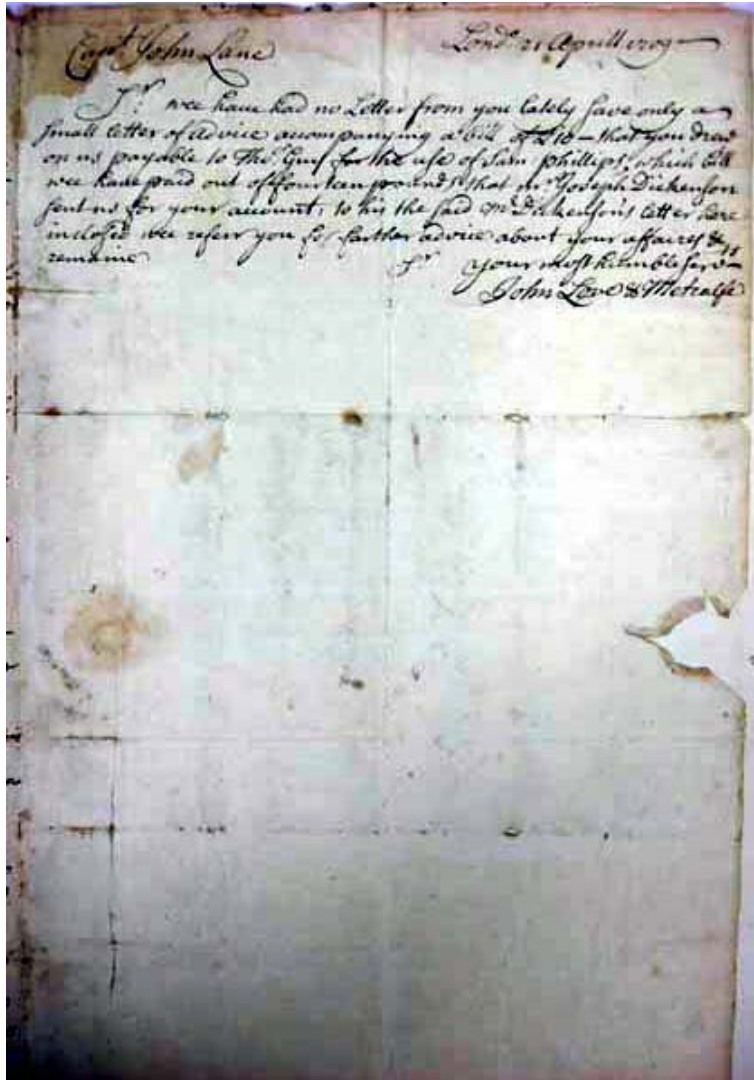 Capt John Lane Lond.o 21 Aprill 1709
Sr. wee have had no Letter from you lately save only a
small letter of Advice accompanying a bill of £10 — that you drew
on us payable to Tho: Guy for the use of Sam Phillips, which bill
wee have paid out of fourteen pounds that mr Joseph Dickenson
sent us for your account, to his the said mr Dickenson's letter here
inclosed wee referr you for farther advice about your affaires &
remaine Sr your most humble Servts
John Love & Metcalfe